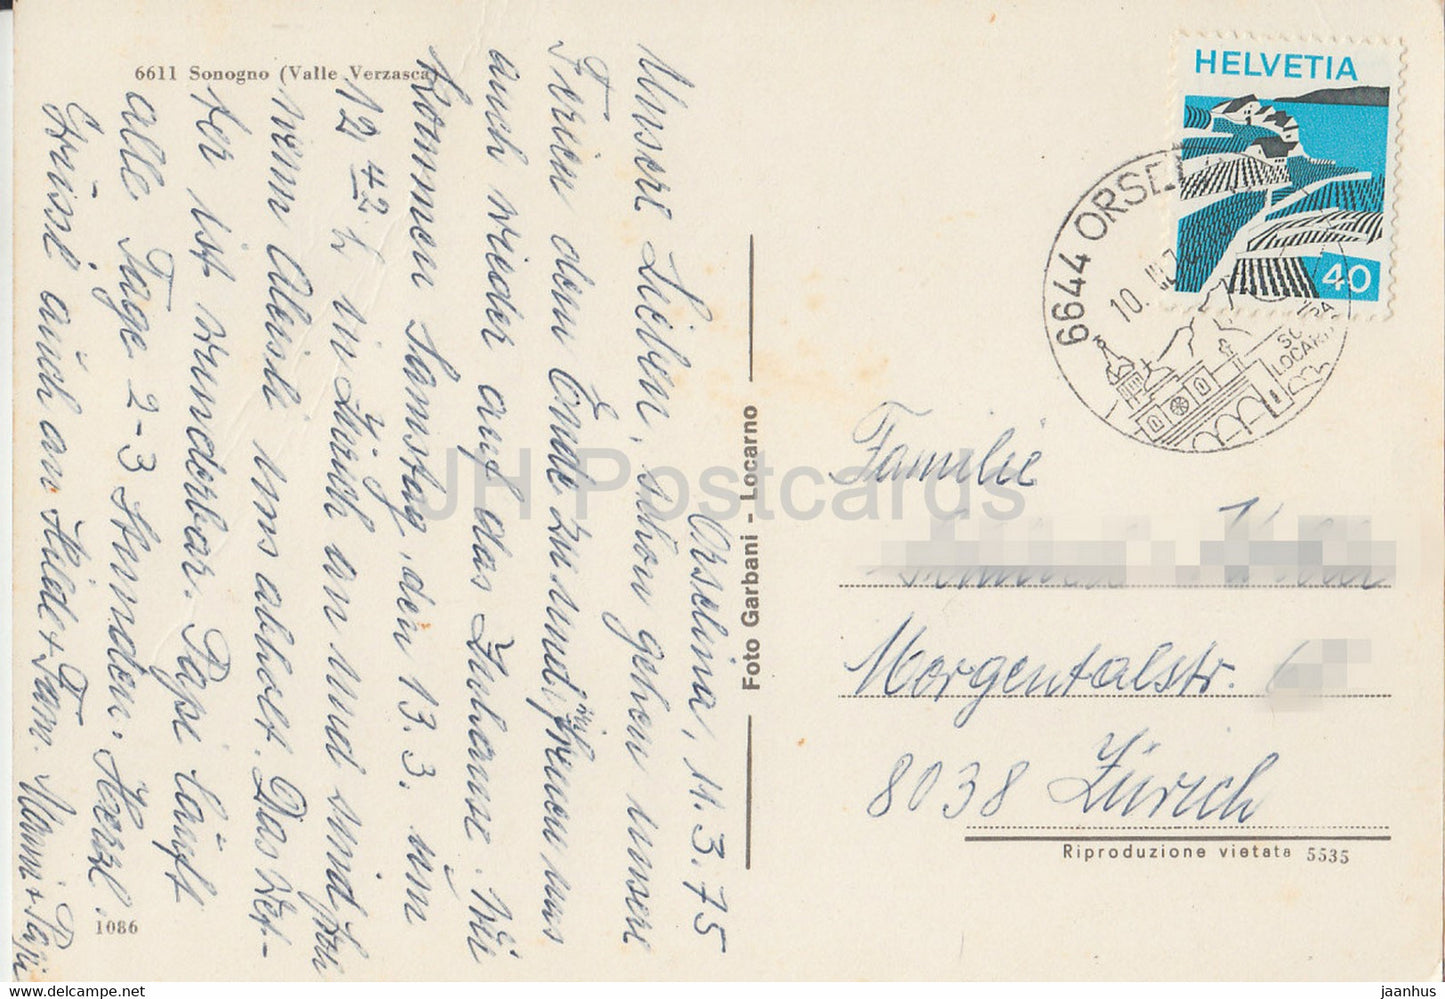 6611 Sonogno (Valle Verzasca)
Orselina, 11.3.75
Unsere Lieben, schon gehen unsere
Ferien dem Ende zu und wir freuen uns
auch wieder auf das Zuhause. Wir
kommen Samstag, den 13.3. um
12 42 h in Zürich an und sind froh
wenn Ruedi uns abholt. Das Wet-
ter ist wunderbar. Papi läuft
alle Tage 2-3 Stunden. Herzl.
Grüsse auch an Hilde + Fam. Mami + Papi
1086
Foto Garbani - Locarno
HELVETIA
40
6644 ORSEL
10.
LOCARNO
Familie
Morgentalstr. 6
8038 Zürich
Riproduzione vietata 5535
JH Postcards
www.delcampe.net
jaanhus